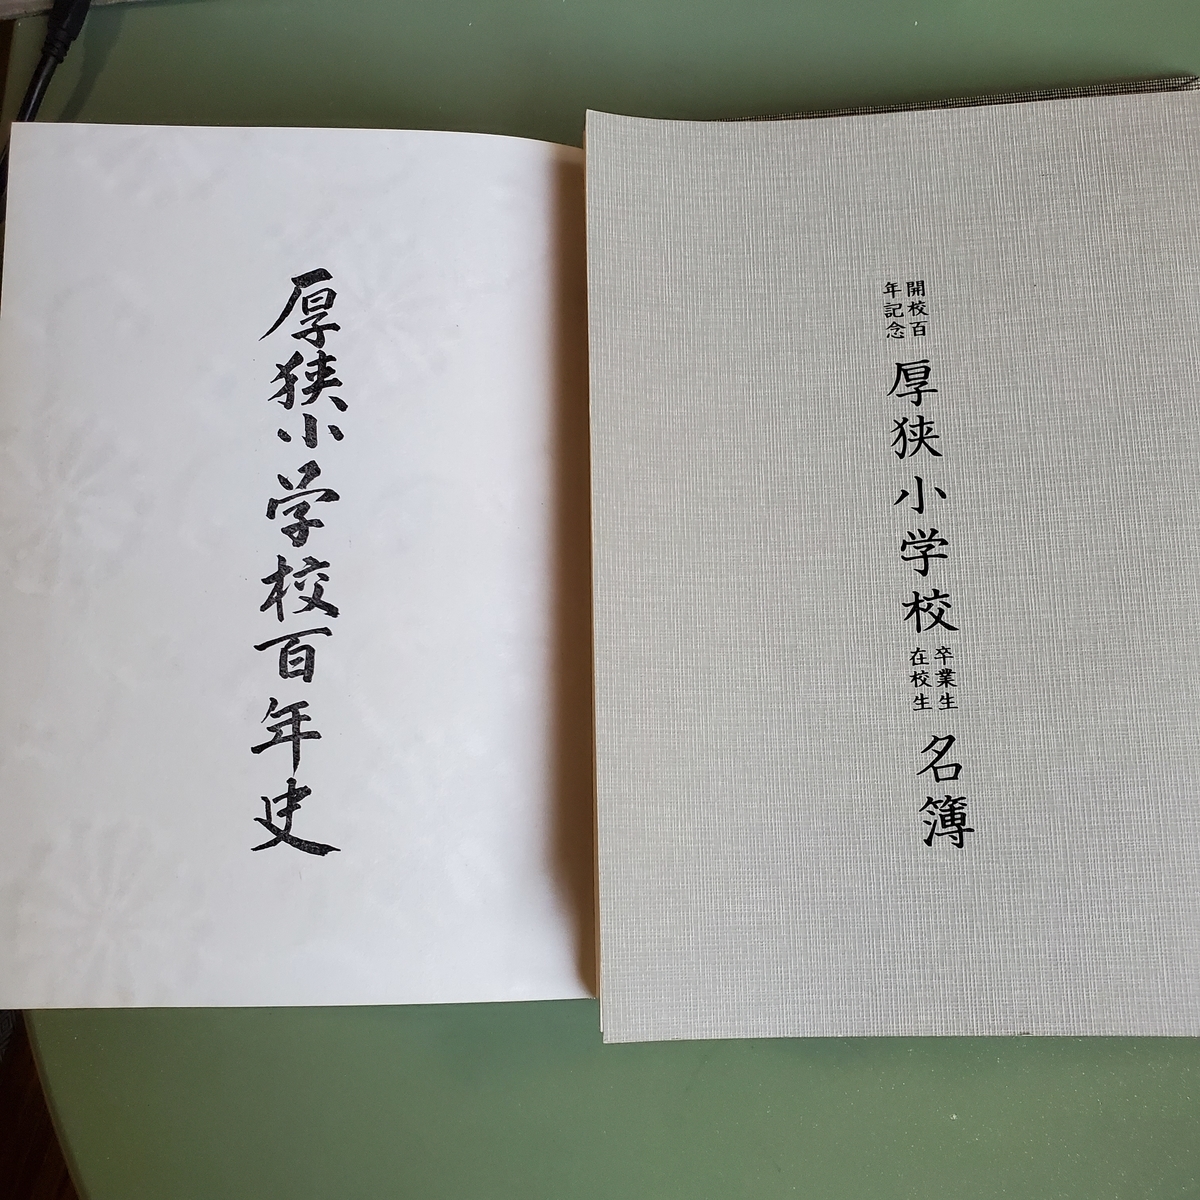 厚狭小学校百年史
開校百
年記念
厚狭小学校
卒業生
在校生
名簿